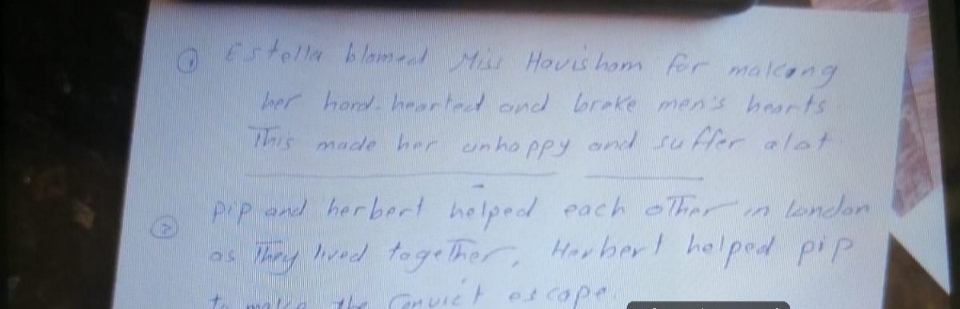 ① Estella blamed Miss Havisham for making
her hard-hearted and broke men's hearts.
This made her unhappy and suffer alot.
② pip and herbert helped each other in london
as They lived together, Herbert helped pip
to make the Convict escape.